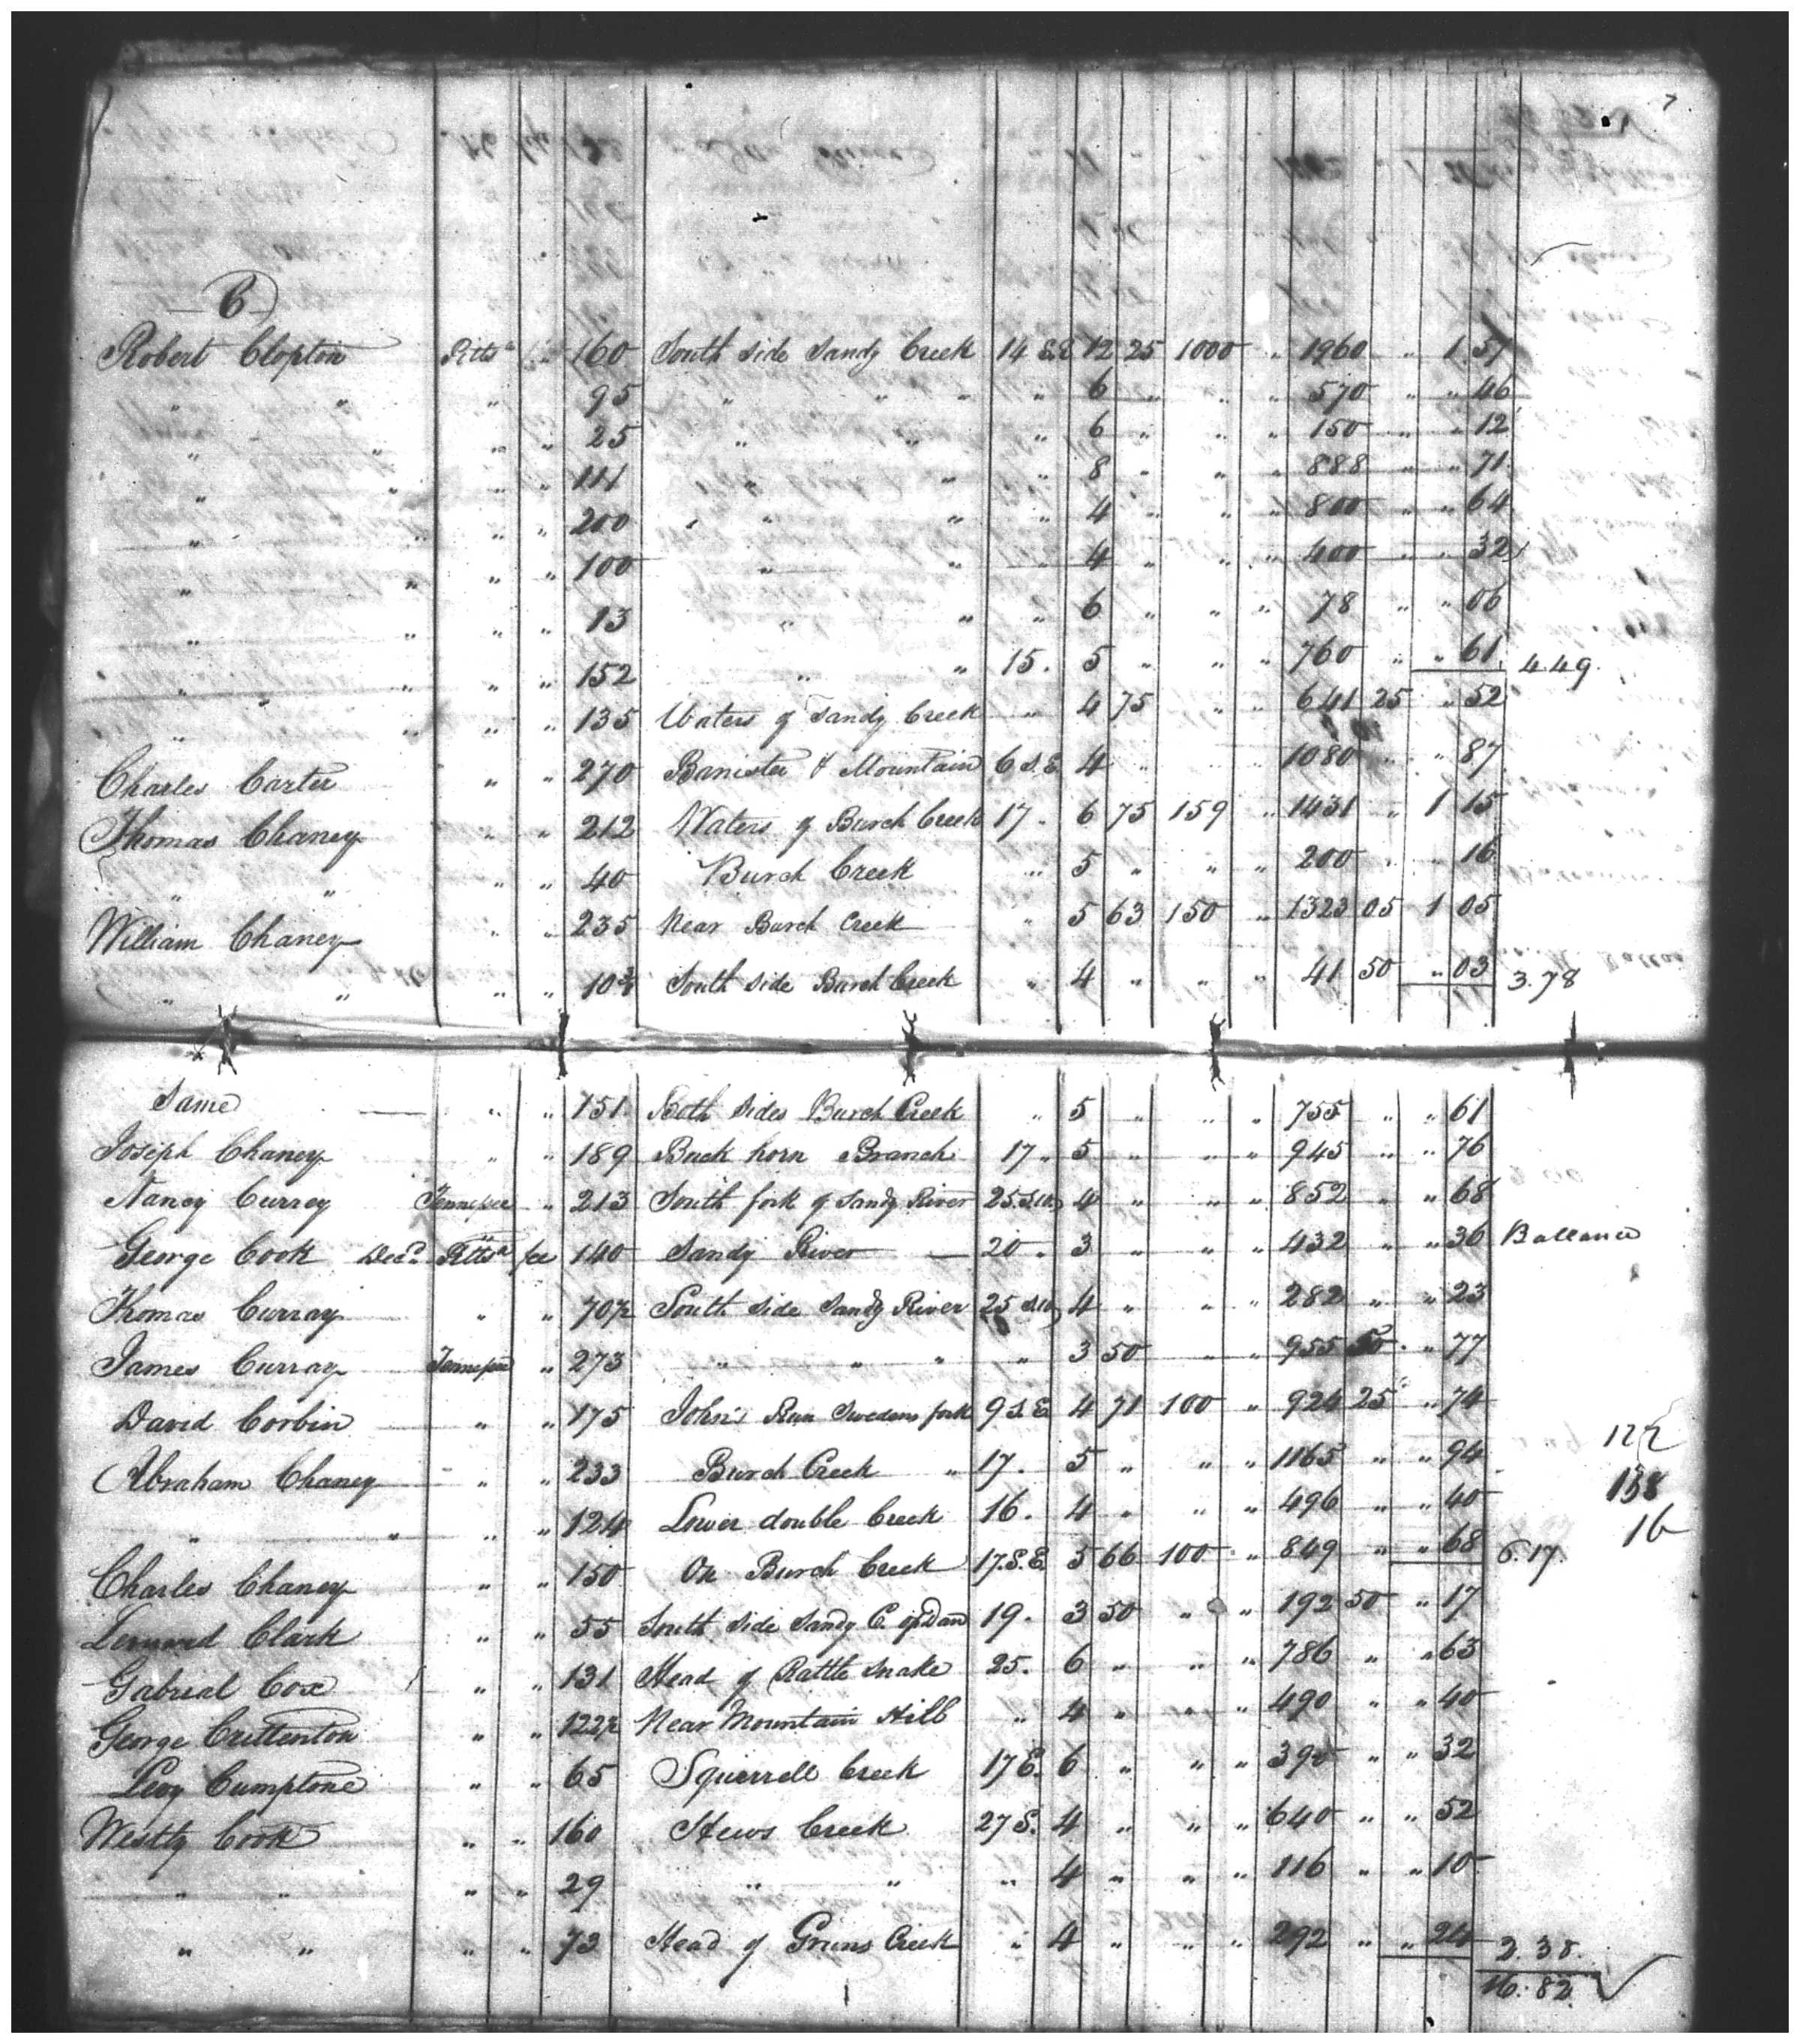 7
C
Robert Clopton Pittsa " 160 South side Sandy Creek 14 S.E 12 25 1000 " 1960 " 1 57
" " " " 95 " " " " 6 " " " 570 " " 46
" " " " 25 " " " 6 " " " 150 " " 12
" " " " 111 " " " 8 " " " 888 " " 71
" " " " 200 " " " " 4 " " " 800 " " 64
" " " " 100 " " " 4 " " " 400 " " 32
" " " " 13 " " " 6 " " " 78 " " 06
" " " " 152 " " 15. 5 " " " 760 " " 61 4.49.
" " " " 135 Waters of Sandy Creek " 4 75 " " 641 25 " 52
Charles Carter " " 270 Banister & Mountain 6 S.E. 4 " " " 1080 " " 87
Thomas Chaney " " 212 Waters of Burch Creek 17 " 6 75 159 " 1431 " 1 15
" " " " 40 Burch Creek " 5 " " " 200 " " 16
William Chaney " " 235 Near Burch Creek " 5 63 150 " 1323 05 1 05
" " " " 10¾ South side Burch Creek " 4 " " " 41 50 " 03 3.78
Same " " 151 Both sides Burch Creek " 5 " " " 755 " " 61
Joseph Chaney " " 189 Buck horn Branch 17 " 5 " " " 945 " " 76
Nancy Currey Tennessee " 213 South fork of Sandy River 25 S.W. 4 " " " 852 " " 68
George Cook Decd. Pittsa fee 140 Sandy River 20 " 3 " " " 432 " " 36 Ballance
Thomas Curray " " 70½ South side Sandy River 25 S.W. 4 " " " 282 " " 23
James Curray Tennessee " 273 " " " " 3 50 " " 955 50 " 77
David Corbin " " 175 John's Run Swedens fork 9 S.E. 4 71 100 " 924 25 " 74
Abraham Chaney " " 233 Burch Creek " 17. 5 " " " 1165 " " 94
122
" " " " 124 Lower double Creek 16. 4 " " " 496 " " 40
158
16
Charles Chaney " " 150 On Burch Creek 17.S.E. 5 66 100 " 849 " " 68 6.17.
Leonard Clark " " 55 South side Sandy C. of Dan 19. 3 50 " " 192 50 " 17
Gabrial Cox " " 131 Head of Rattle Snake 25. 6 " " " 786 " " 63
George Crittenton " " 122½ Near Mountain Hill " 4 " " " 490 " " 40
Levy Cumptone " " 65 Squerrell Creek 17 E. 6 " " " 390 " " 32
Cook " " 160 Stews Creek 27 S. 4 " " " 640 " " 52
" " " " 29 " " " 4 " " " 116 " " 10
" " " " 73 Head of Creek " 4 " " " 292 " " 24 2.38.
16.82